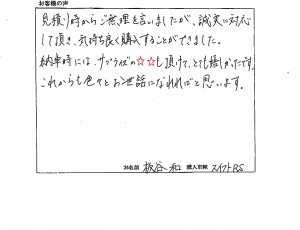 お客様の声
見積り時からご無理を言いましたが、誠実に対応
して頂き、気持ち良く購入することができました。
納車時には、サプライズの☆☆も頂けて、とても嬉しかったです。
これからも色々とお世話になれればと思います。
お名前 板谷 和 購入車種 スイフトRS